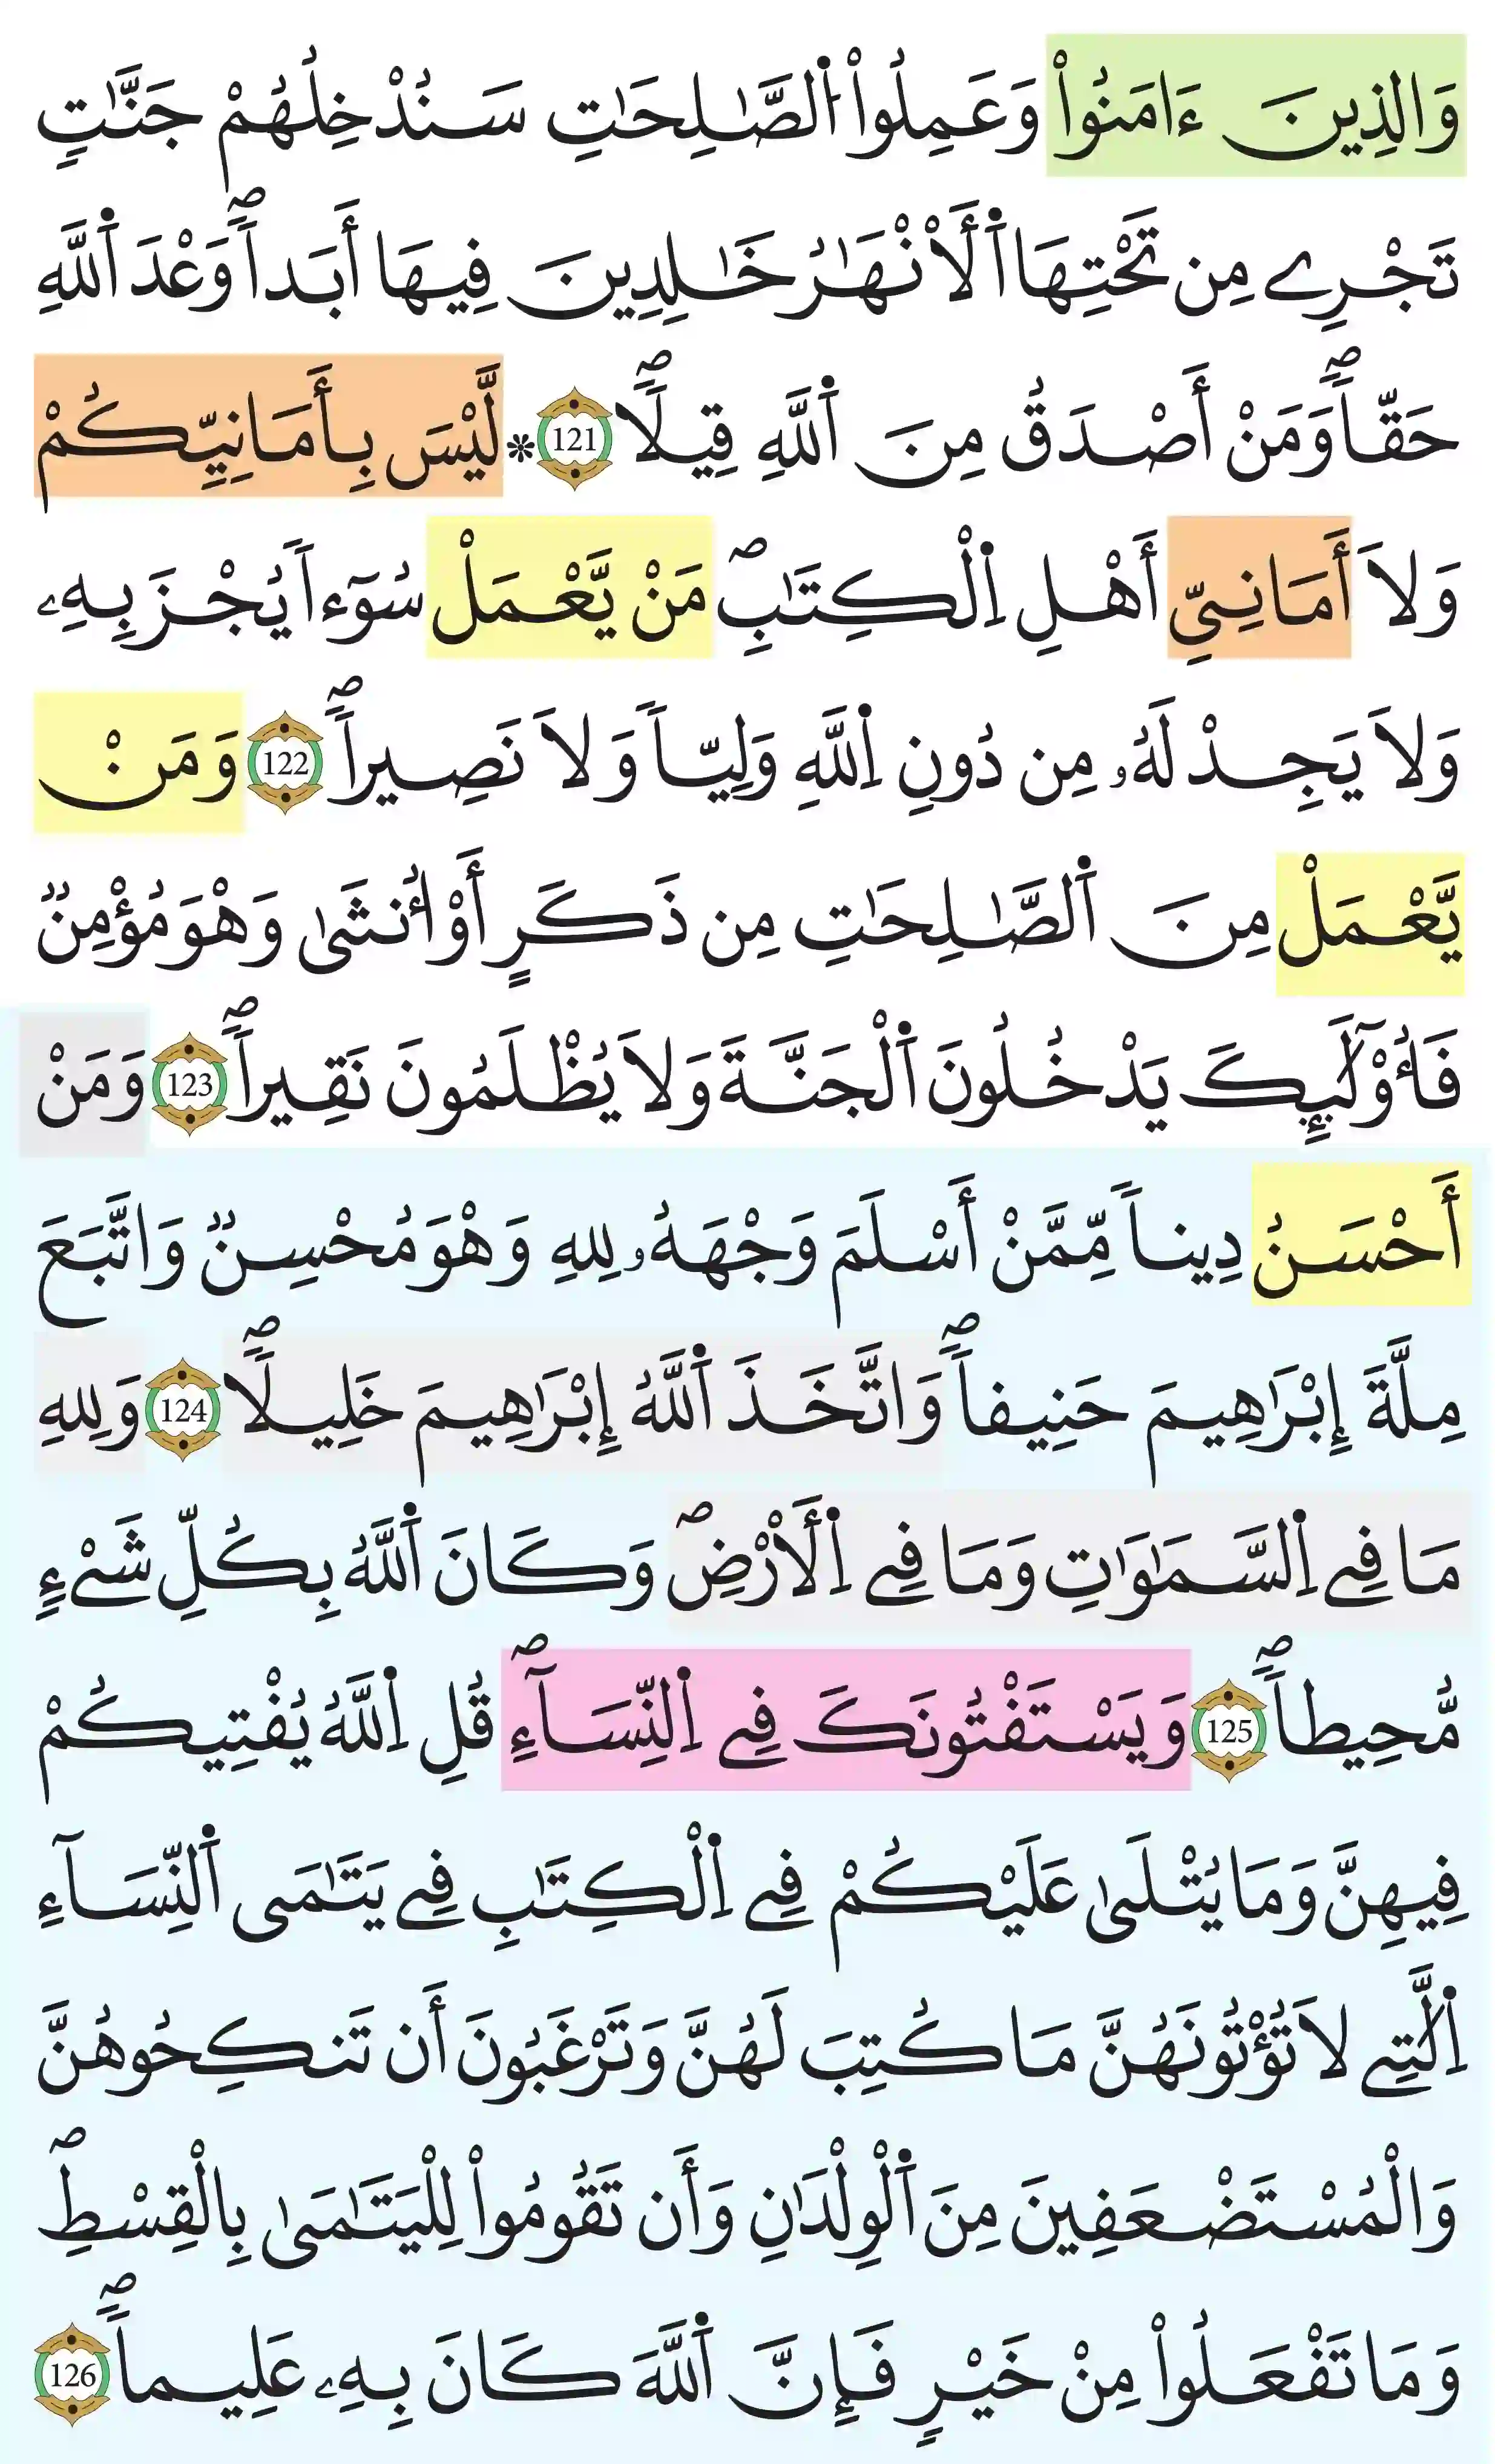 وَالذِينَ ءَامَنُواْ وَعَمِلُواْ اُ۬لصَّٰلِحَٰتِ سَنُدْخِلُهُمْ جَنَّٰتٖ
تَجْرِے مِن تَحْتِهَا اَ۬لَانْهَٰرُ خَٰلِدِينَ فِيهَا أَبَداٗۖ وَعْدَ اَ۬للَّهِ
حَقّاٗۖ وَمَنْ أَصْدَقُ مِنَ اَ۬للَّهِ قِيلاٗۖ 121 * لَّيْسَ بِأَمَانِيِّكُمْ
وَلَا أَمَانِيِّ أَهْلِ اِ۬لْكِتَٰبِۖ مَنْ يَّعْمَلْ سُوٓءاٗ يُجْزَ بِهِۦ
وَلَا يَجِدْ لَهُۥ مِن دُونِ اِ۬للَّهِ وَلِيّاٗ وَلَا نَصِيراٗۖ 122 وَمَنْ
يَّعْمَلْ مِنَ اَ۬لصَّٰلِحَٰتِ مِن ذَكَرٍ أَوْ أُنث۪ىٰ وَهْوَ مُؤْمِنٞ
فَأُوْلَٰٓئِكَ يَدْخُلُونَ اَ۬لْجَنَّةَ وَلَا يُظْلَمُونَ نَقِيراٗۖ 123 وَمَنْ
أَحْسَنُ دِيناٗ مِّمَّنْ أَسْلَمَ وَجْهَهُۥ لِلهِ وَهْوَ مُحْسِنٞ وَاتَّبَعَ
مِلَّةَ إِبْرَٰهِيمَ حَنِيفاٗۖ وَاتَّخَذَ اَ۬للَّهُ إِبْرَٰهِيمَ خَلِيلاٗۖ 124 وَلِلهِ
مَا فِے اِ۬لسَّمَٰوَٰتِ وَمَا فِے اِ۬لْأَرْضِۖ وَكَانَ اَ۬للَّهُ بِكُلِّ شَےْءٖ
مُّحِيطاٗۖ 125 وَيَسْتَفْتُونَكَ فِے اِ۬لنِّسَآءِۖ قُلِ اِ۬للَّهُ يُفْتِيكُمْ
فِيهِنَّ وَمَا يُتْلَىٰ عَلَيْكُمْ فِے اِ۬لْكِتَٰبِ فِے يَتَٰمَى اَ۬لنِّسَآءِ
اِ۬لَّٰتِے لَا تُؤْتُونَهُنَّ مَا كُتِبَ لَهُنَّ وَتَرْغَبُونَ أَن تَنكِحُوهُنَّ
وَالْمُسْتَضْعَفِينَ مِنَ اَ۬لْوِلْدَٰنِ وَأَن تَقُومُواْ لِلْيَتَٰمَىٰ بِالْقِسْطِۖ
وَمَا تَفْعَلُواْ مِنْ خَيْرٖ فَإِنَّ اَ۬للَّهَ كَانَ بِهِۦ عَلِيماٗۖ 126